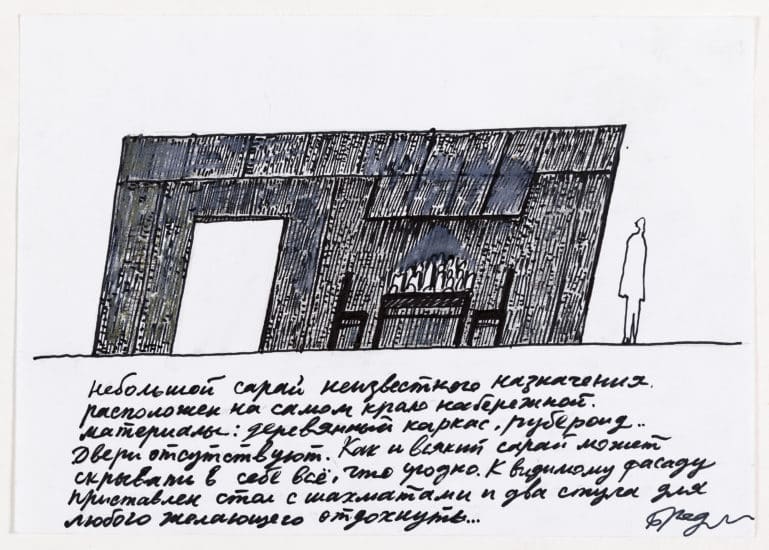 Небольшой сарай неизвестного назначения.
расположен на самом краю набережной.
материалы: деревянный каркас, рубероид..
Двери отсутствуют. Как и всякий сарай может
скрывать в себе всё, что угодно. К видимому фасаду
приставлен стол с шахматами и два стула для
любого желающего отдохнуть...